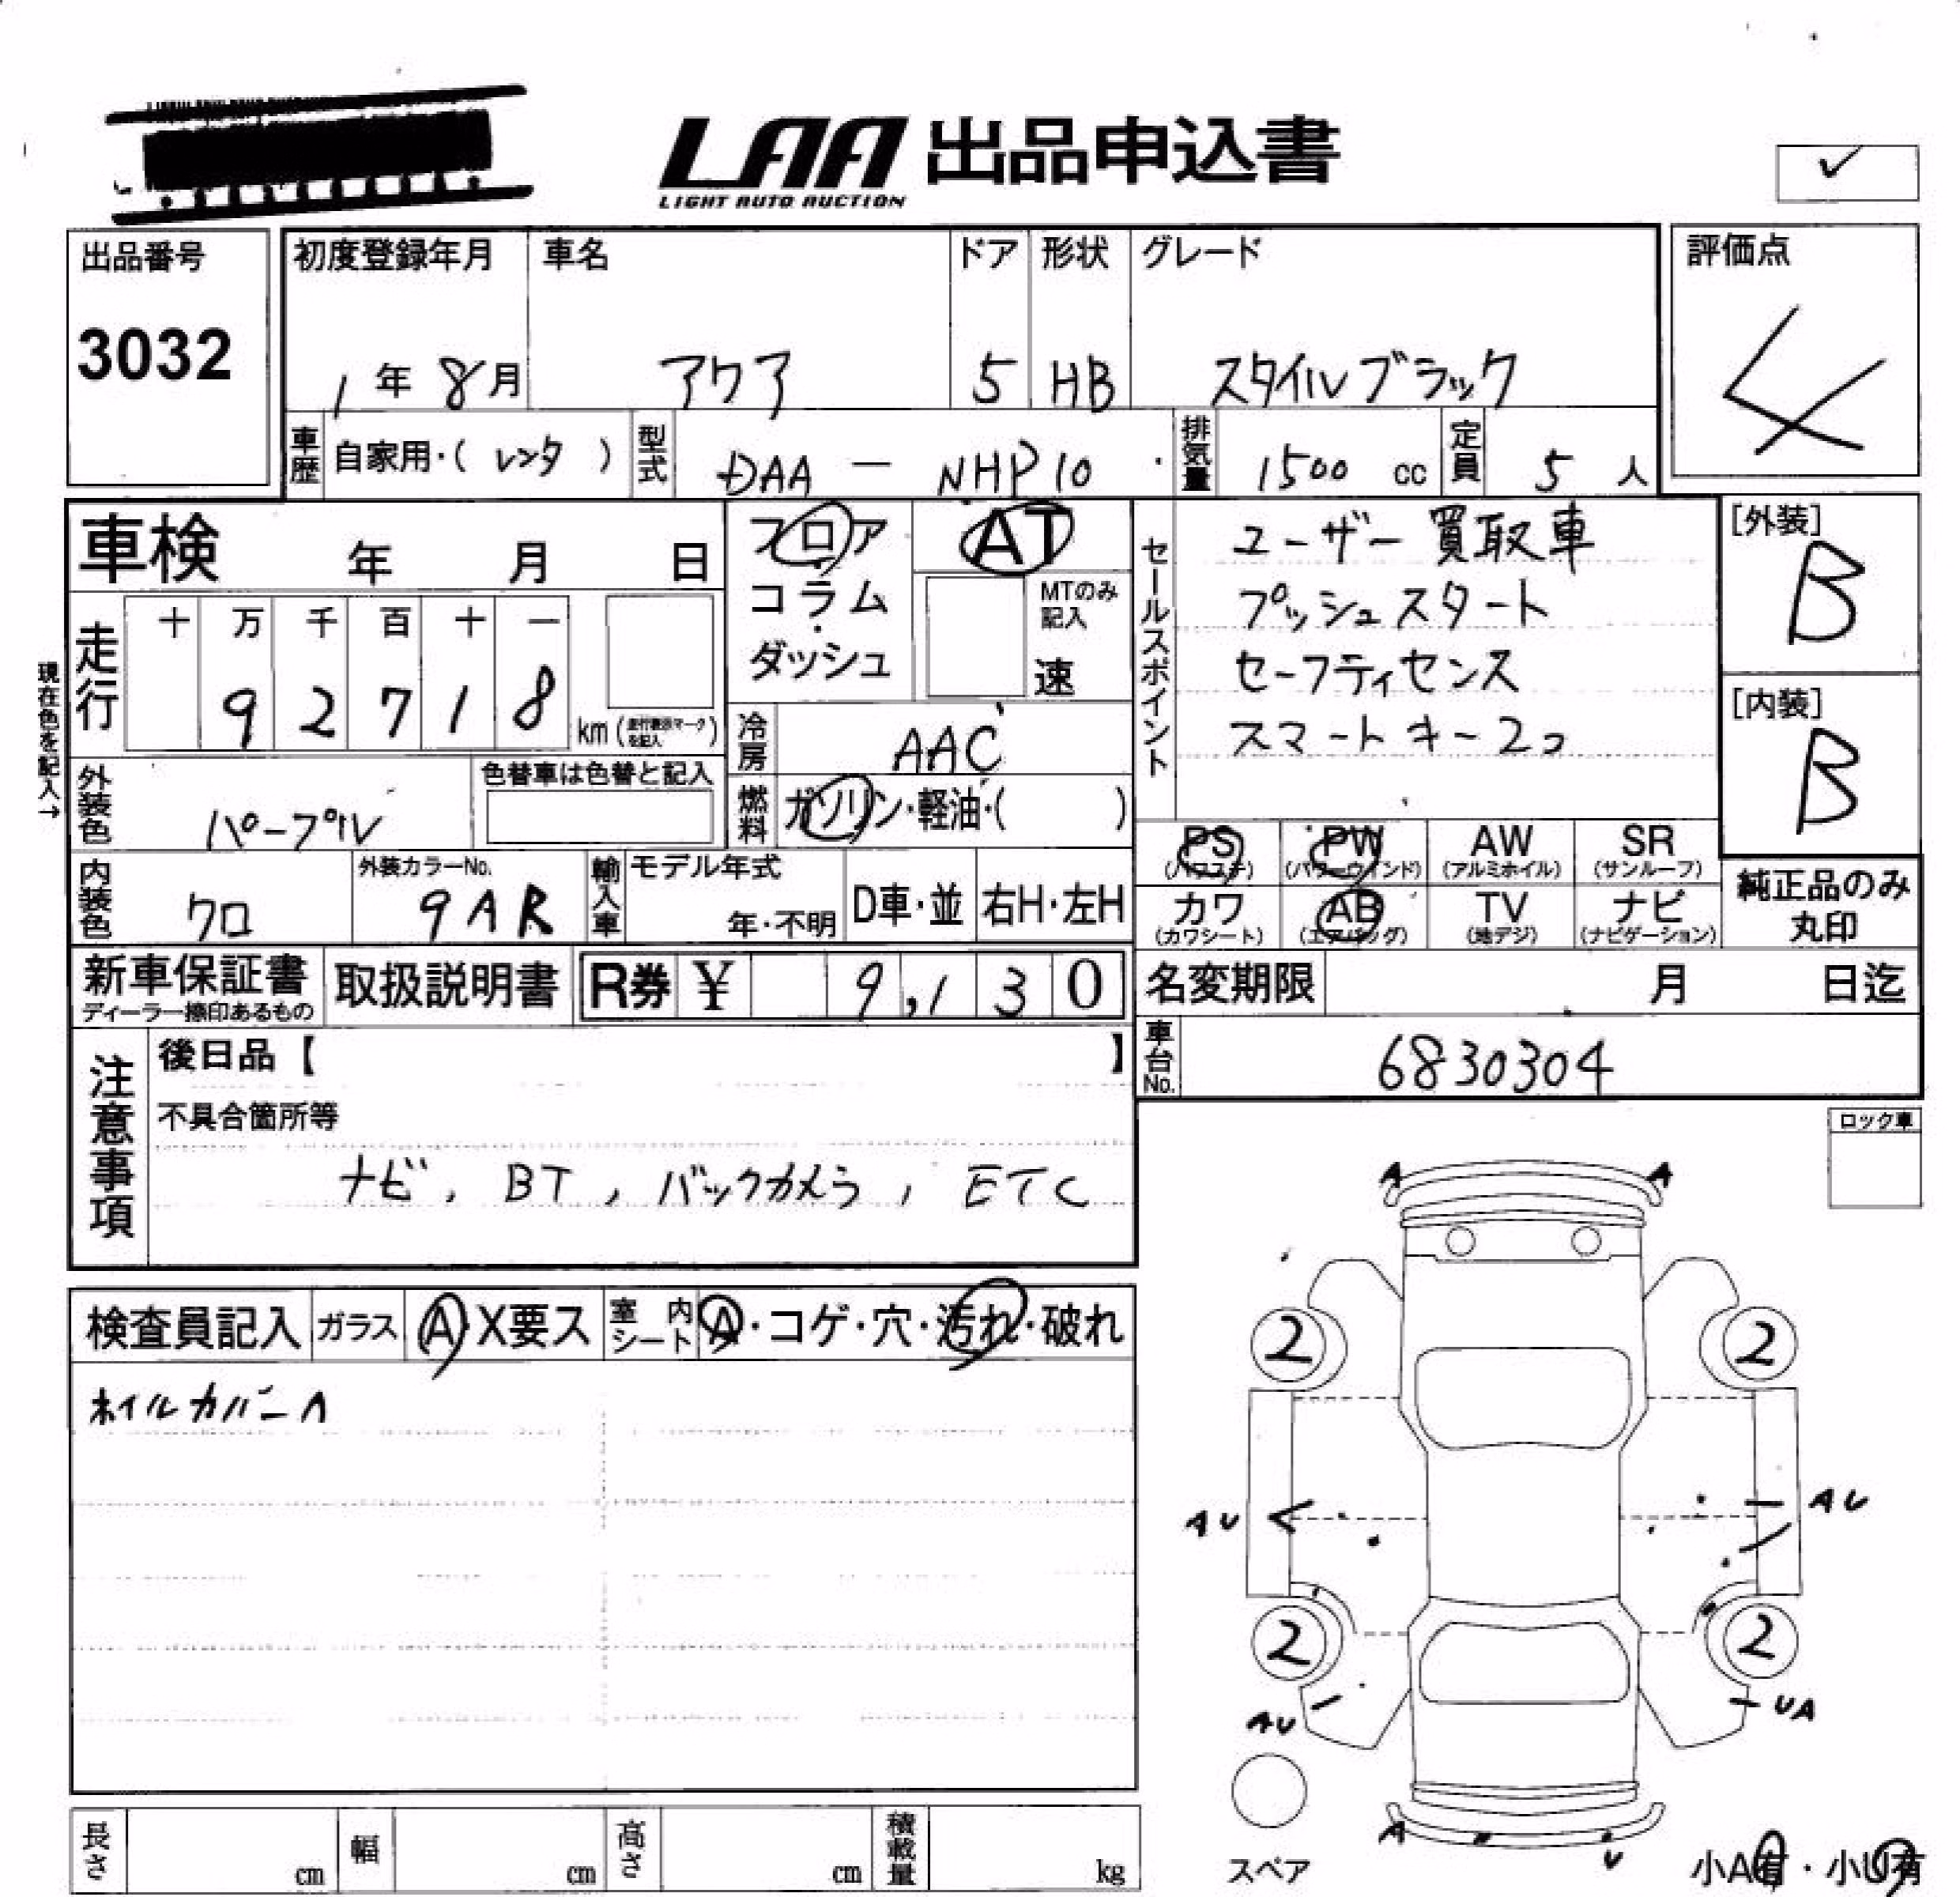 LAA 出品申込書
LIGHT AUTO AUCTION
✓
出品番号
3032
初度登録年月 車名 ドア 形状 グレード
1年 8月 アクア 5 HB スタイルブラック
評価点
4
車歴 自家用・( レンタ ) 型式 DAA — NHP10 排気量 1500 cc 定員 5 人
車検 年 月 日
フロア
コラム
ダッシュ
AT
MTのみ
記入
速
セールスポイント
ユーザー買取車
プッシュスタート
セーフティセンス
スマートキー2コ
[外装]
B
[内装]
B
現在色を記入→
走行 十 万 千 百 十 一
9 2 7 1 8 km (走行表示マークを記入)
冷房 AAC
外装色 パープル
色替車は色替と記入
燃料 ガソリン・軽油・( )
PS (パワステ) PW (パワーウインド) AW (アルミホイル) SR (サンルーフ)
カワ (カワシート) AB (エアバッグ) TV (地デジ) ナビ (ナビゲーション)
純正品のみ
丸印
内装色 クロ
外装カラーNo.
9AR
輸入車 モデル年式
年・不明 D車・並 右H・左H
新車保証書
ディーラー捺印あるもの
取扱説明書 R券 ¥ 9,130
名変期限 月 日迄
車台No. 6830304
注意事項
後日品【 】
不具合箇所等
ナビ, BT, バックカメラ, ETC
ロック車
検査員記入 ガラス A・X要ス 室内シート A・コゲ・穴・汚れ・破れ
ホイルカバーA
A A
2 2
AU AU
2 2
AU UA
A U
スペア
小A有・小U有
長さ cm 幅 cm 高さ cm 積載量 kg